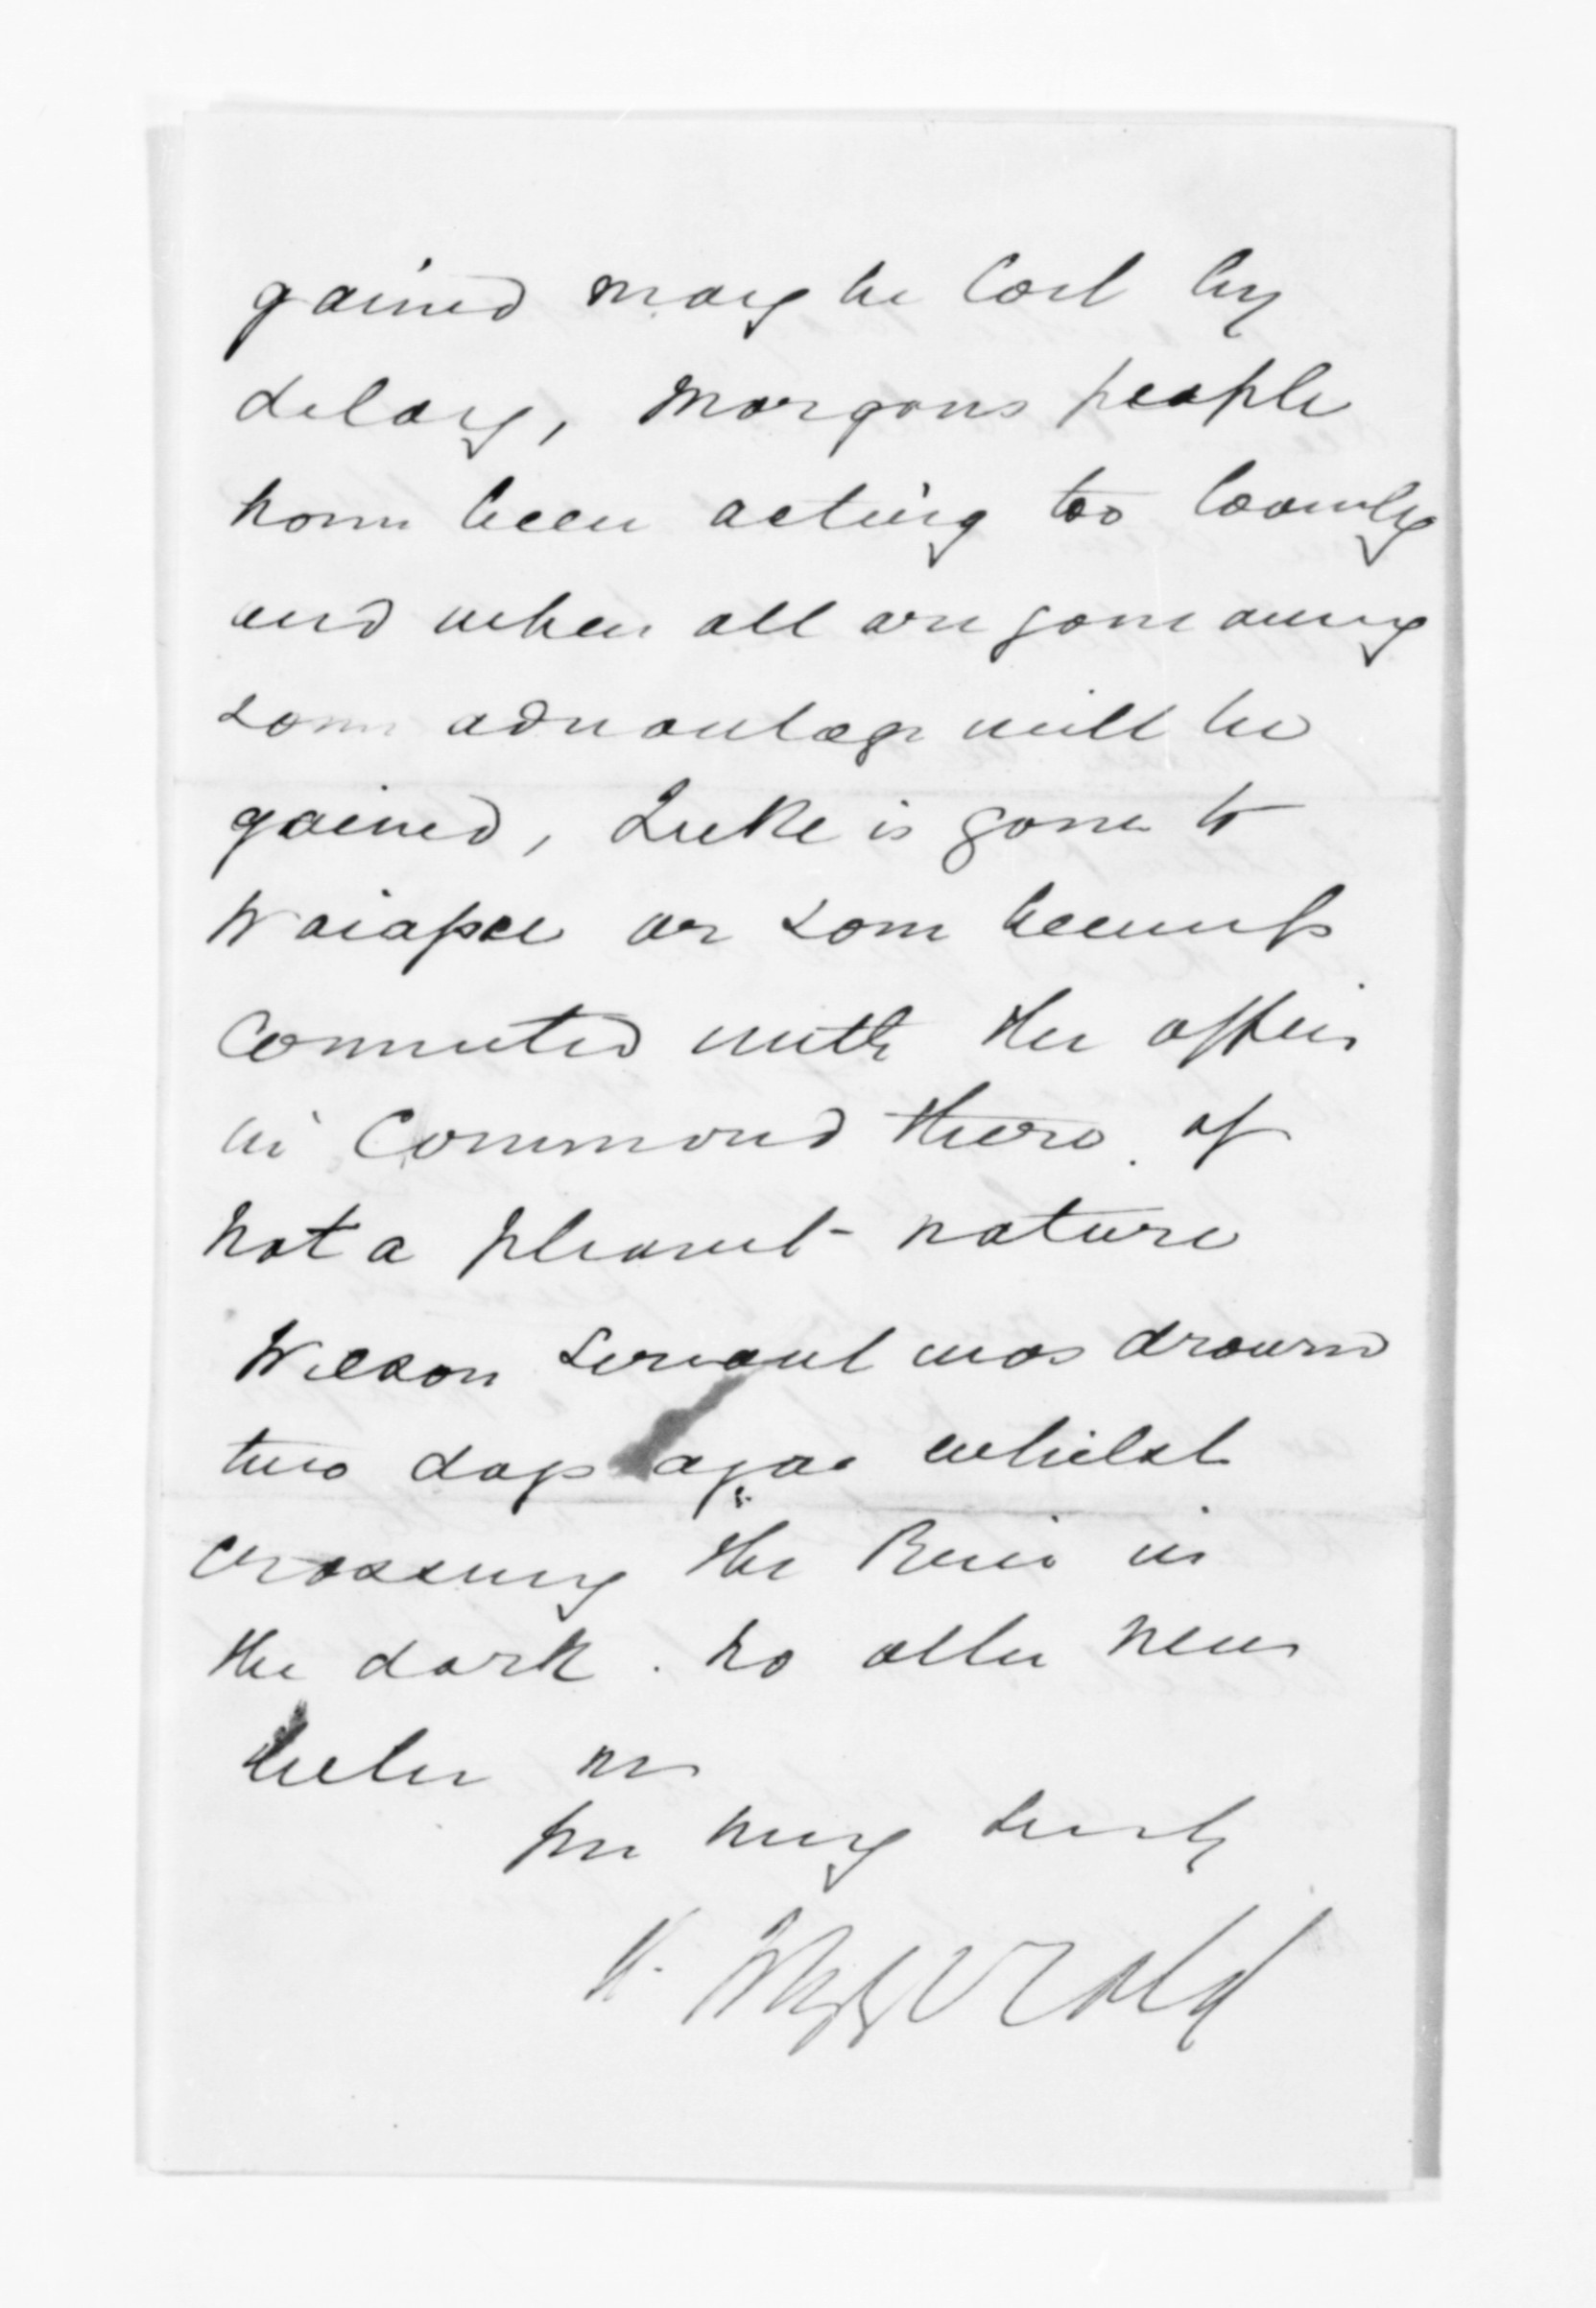 gained may be lost by
delay, Morgans people
have been acting too loosely
and when all are gone away
some advantage will be
gained, Luke is gone to
Waiapu on some business
connected with the officer
in Command there of
not a pleasant nature
Wilson servant was drownd
two days ago whilst
crossing the River in
the dark. no other news
believe me
yours very truly